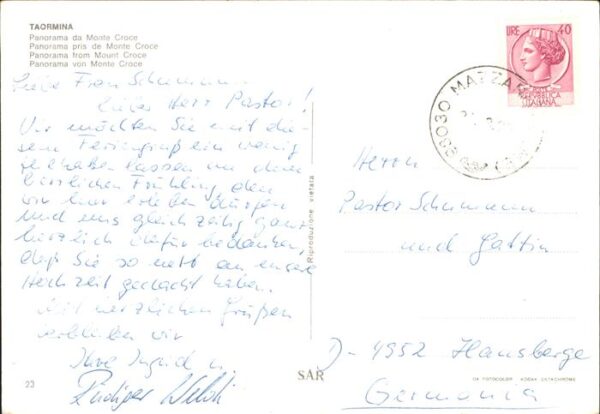 TAORMINA
Panorama da Monte Croce
Panorama pris de Monte Croce
Panorama from Mount Croce
Panorama von Monte Croce
Liebe Frau Schumann,
lieber Herr Pastor!
Wir möchten Sie mit die-
sem Feriengruß ein wenig
teilhaben lassen an dem
herrlichen Frühling, den
wir hier erleben dürfen
und uns gleichzeitig ganz
herzlich dafür bedanken,
daß Sie so nett an unsere
Hochzeit gedacht haben.
Mit herzlichen Grüßen
verbleiben wir
Ihre Ingrid u.
Rüdiger
22
SAR
Riproduzione vietata
LIRE 40
REPUBBLICA
ITALIANA
98030 MAZZA
Herrn
Pastor Schumann
und Gattin
D-4952 Hausberge
Germania
DA FOTOCOLOR KODAK EKTACHROME